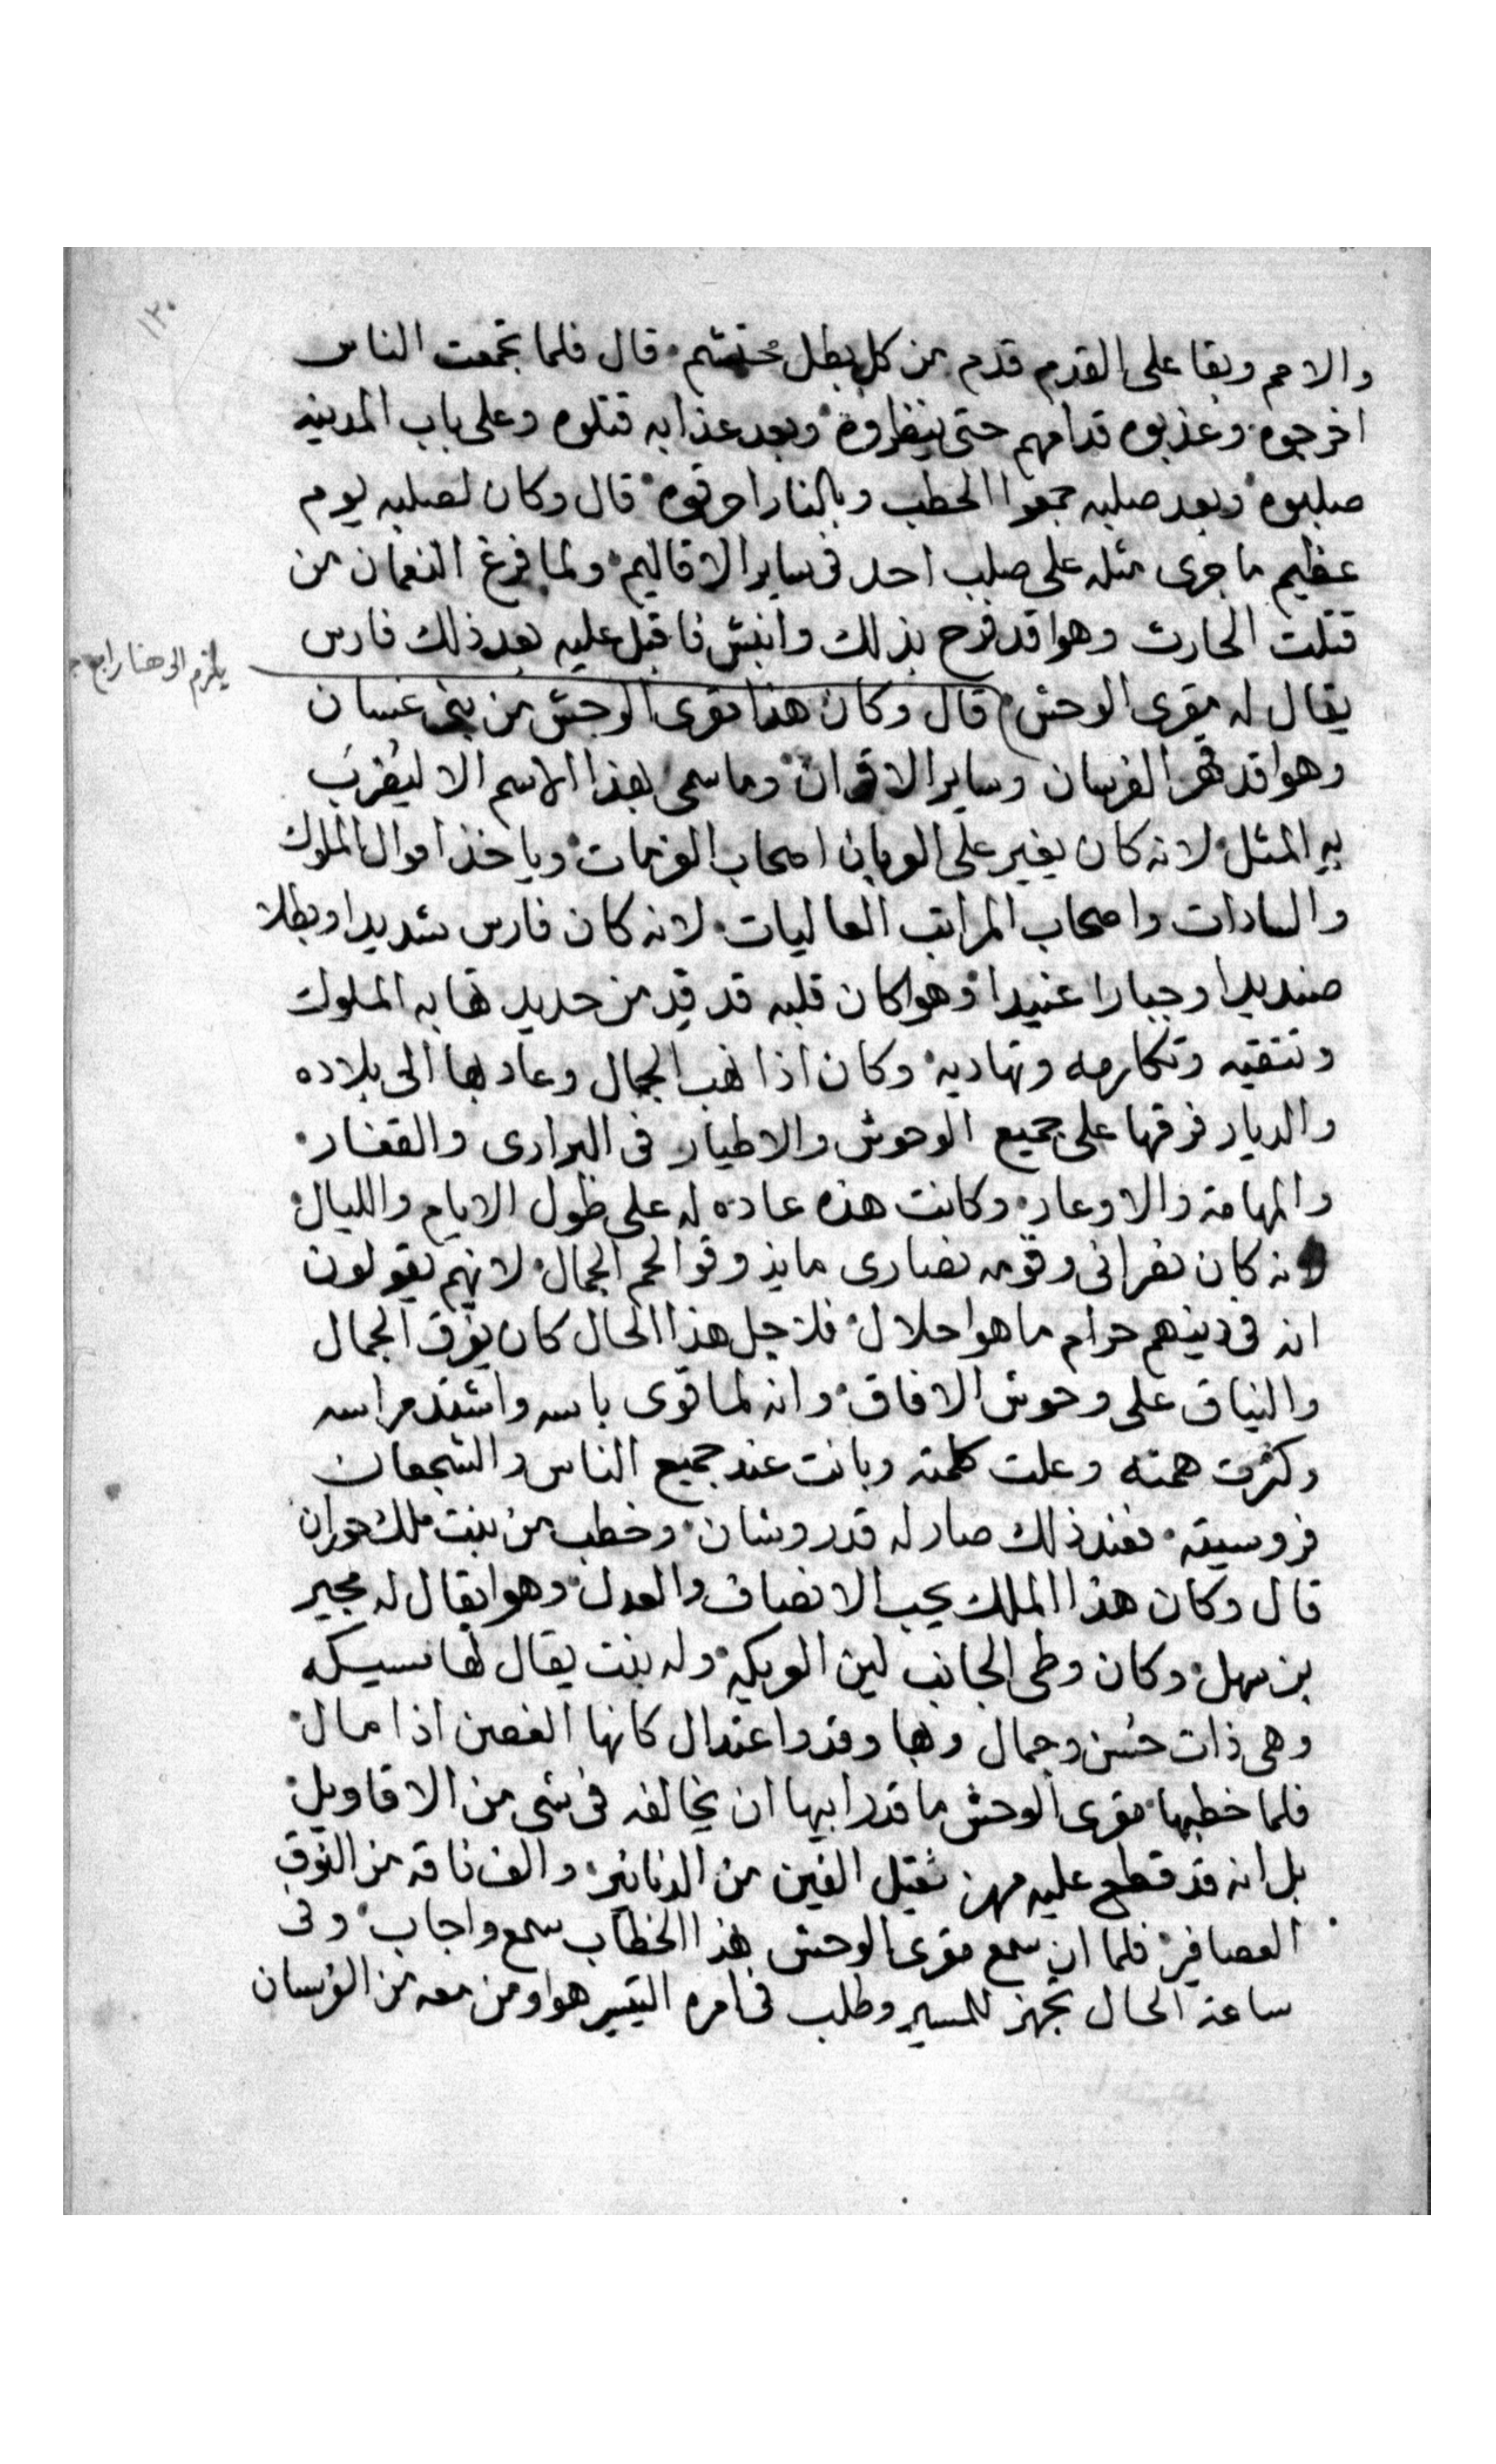 ١٣٠
والامم وبقا على القدم قدم من كل بطل محتشم قال فلما تجمعت الناس
اخرجوه وعذبوه قدامهم حتى ينظروه وبعد عذابه قتلوه وعلى باب المدينه
صلبوه وبعد صلبه جمعوا الحطب وبالنار احرقوه قال وكان لصلبه يوم
عظيم ما جرى مثله على صلب احد فى ساير الاقاليم ولما فرغ النعمان من
قتلت الحارث وهوا قد فرح بذلك وانبش فاقبل عليه بعد ذلك فارس
يلزم الى هنا رابع
يقال له مقرى الوحش قال وكان هذا مقرى الوحش من بنى غسان
وهوا قد قهر الفرسان وساير الاقران وما سمى بهذا الاسم الا ليضرب
به المثل لانه كان يغير على العربان اصحاب العزمات وياخذ اموال الملوك
والسادات واصحاب المراتب العاليات لانه كان فارس شديدا وبطلا
صنديدا وجبارا عنيدا وهوا كان قلبه قد قد من حديد تهابه الملوك
وتتقيه وتكارمه وتهاديه وكان اذا نهب الجمال وعاد بها الى بلاده
والديار فرقها على جميع الوحوش والاطيار فى البرارى والقفار
والمهامه والاوعار وكانت هذه عاده له على طول الايام والليال
لانه كان نصرانى وقومه نصارى ما يذوقوا لحم الجمال لانهم يقولون
انه فى دينهم حرام ما هوا حلال فلاجل هذا الحال كان يفرق الجمال
والنياق على وحوش الافاق وانه لما قوى باسه واشتد مراسه
وكثرت همته وعلت كلمته وبانت عند جميع الناس والشجعان
فروسيته فعند ذلك صار له قدر وشان وخطب من بنت ملك حوران
قال وكان هذا الملك يحب الانصاف والعدل وهوا يقال له مجير
بن سهل وكان وطى الجانب لين العريكه وله بنت يقال لها مسيكه
وهى ذات حُسن وجمال وبها وقد واعتدال كانها الغصن اذا مال
فلما خطبها مقرى الوحش ما قدر ابيها ان يخالفه فى شى من الاقاويل
بل انه قد قطع عليه مهرا ثقيل الفين من الدنانير والف ناقه من النوق
العصافير فلما ان سمع مقرى الوحش هذا الخطاب سمع واجاب وفى
ساعة الحال تجهز للمسير وطلب فى امره التيسير هوا ومن معه من الفرسان